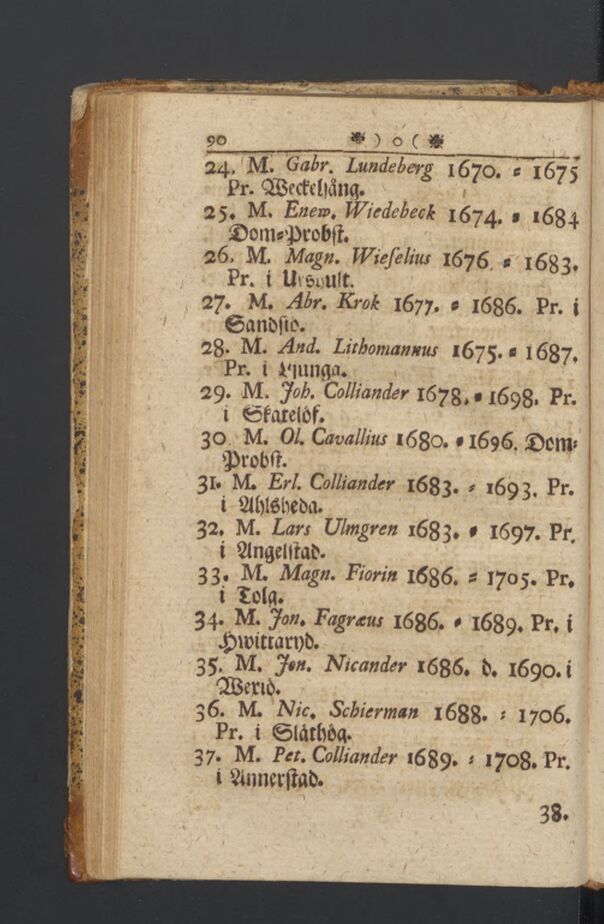 90 ❉ ) o ( ❉
24. M. Gabr. Lundeberg 1670. = 1675
Pr. Weckelsång.
25. M. Enew. Wiedebeck 1674. = 1684
Dom=Probst.
26. M. Magn. Wieselius 1676. = 1683.
Pr. i Urshult.
27. M. Abr. Krok 1677. = 1686. Pr. i
Sandsiö.
28. M. And. Lithomannus 1675. = 1687.
Pr. i Liunga.
29. M. Joh. Colliander 1678. = 1698. Pr.
i Skatelöf.
30. M. Ol. Cavallius 1680. = 1696. Dom=
Probst.
31. M. Erl. Colliander 1683. = 1693. Pr.
i Ahlsheda.
32. M. Lars Ulmgren 1683. = 1697. Pr.
i Angelstad.
33. M. Magn. Fiorin 1686. = 1705. Pr.
i Tolg.
34. M. Jon. Fagræus 1686. = 1689. Pr. i
Hwittaryd.
35. M. Jon. Nicander 1686. d. 1690. i
Wexiö.
36. M. Nic. Schierman 1688. = 1706.
Pr. i Slåthög.
37. M. Pet. Colliander 1689. = 1708. Pr.
i Annerstad.
38.